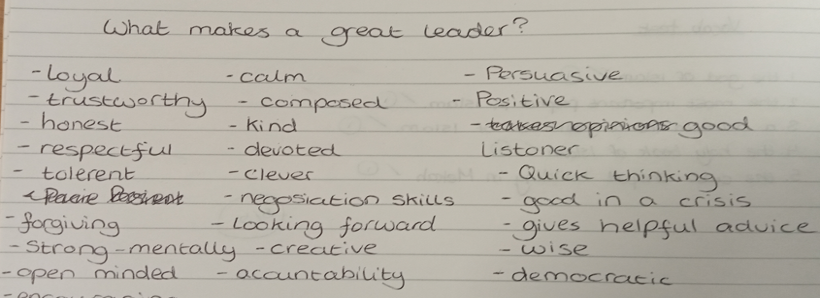 What makes a great leader?
- Loyal - calm - Persuasive
- trustworthy - composed - Positive
- honest - kind - takes opinions good
- respectful - devoted Listoner
- tolerent - clever - Quick thinking
- negosiation skills - good in a crisis
- forgiving - Looking forward - gives helpful advice
- Strong-mentally - creative - wise
- open minded - accountability - democratic